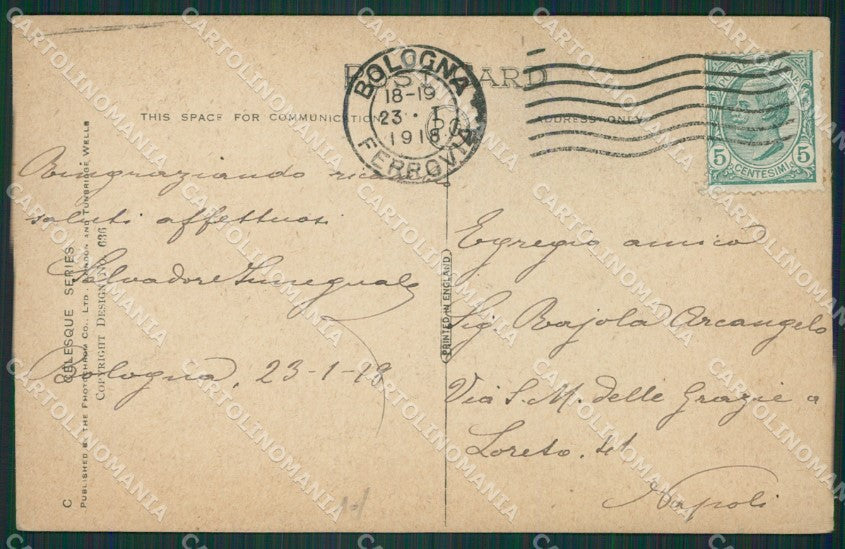 POST CARD
THIS SPACE FOR COMMUNICATION
ADDRESS ONLY
BOLOGNA
18-19
23 · I
1918
FERROVIA
5 5
CENTESIMI
Ringraziando
saluti affettuosi
Salvadore
Bologna, 23-1-18
Egregio amico
Sig. Bajola Arcangelo
Via S. M. delle Grazie a
Loreto. 41
Napoli
PRINTED IN ENGLAND
C
CELESQUE SERIES
PUBLISHED BY THE PHOTOCHROM CO., LTD. LONDON AND TUNBRIDGE WELLS
COPYRIGHT DESIGN NO. 636
CARTOLINOMANIA